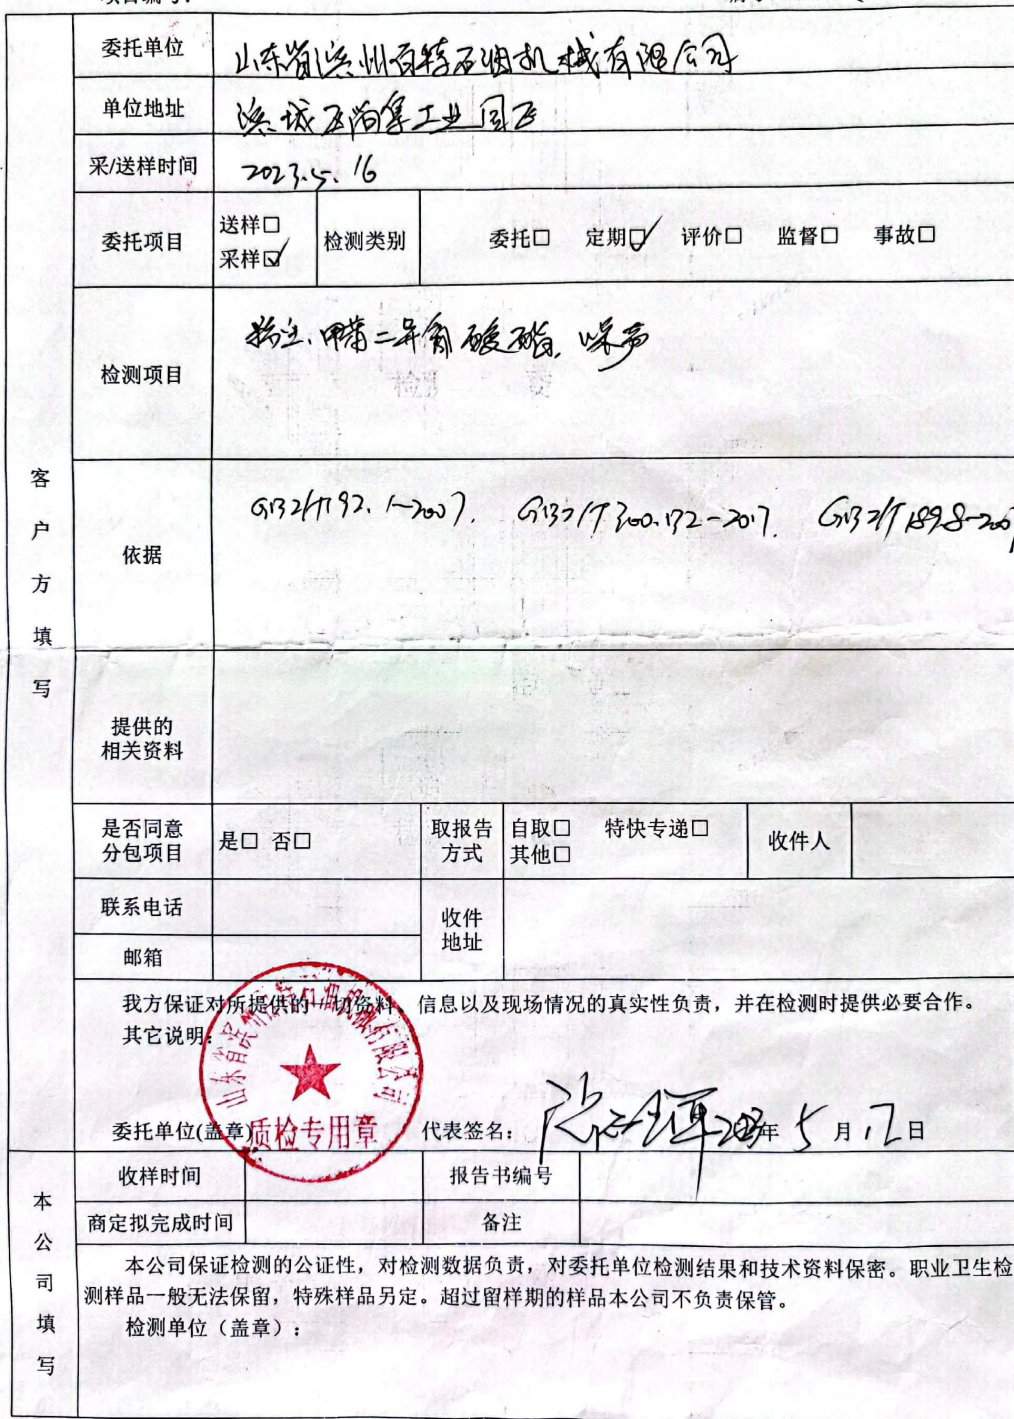 委托单位 山东省滨州百特石油机械有限公司
单位地址 滨城区尚集工业园区
采/送样时间 2023.5.16
委托项目 送样□ 采样☑ 检测类别 委托□ 定期☑ 评价□ 监督□ 事故□
检测项目 粉尘、甲苯二异氰酸酯、噪声
客户方填写
依据 GBZ/T192.1-2007. GBZ/T300.132-2017. GBZ/T189.8-2007
提供的
相关资料
是否同意
分包项目 是□ 否□ 取报告
方式 自取□ 特快专递□
其他□ 收件人
联系电话 收件
地址
邮箱
我方保证对所提供的一切资料、信息以及现场情况的真实性负责，并在检测时提供必要合作。
其它说明：
山东省滨州百特石油机械有限公司
质检专用章
委托单位(盖章) 代表签名： 2023年 5 月 12日
本公司填写
收样时间 报告书编号
商定拟完成时间 备注
本公司保证检测的公证性，对检测数据负责，对委托单位检测结果和技术资料保密。职业卫生检
测样品一般无法保留，特殊样品另定。超过留样期的样品本公司不负责保管。
检测单位（盖章）：